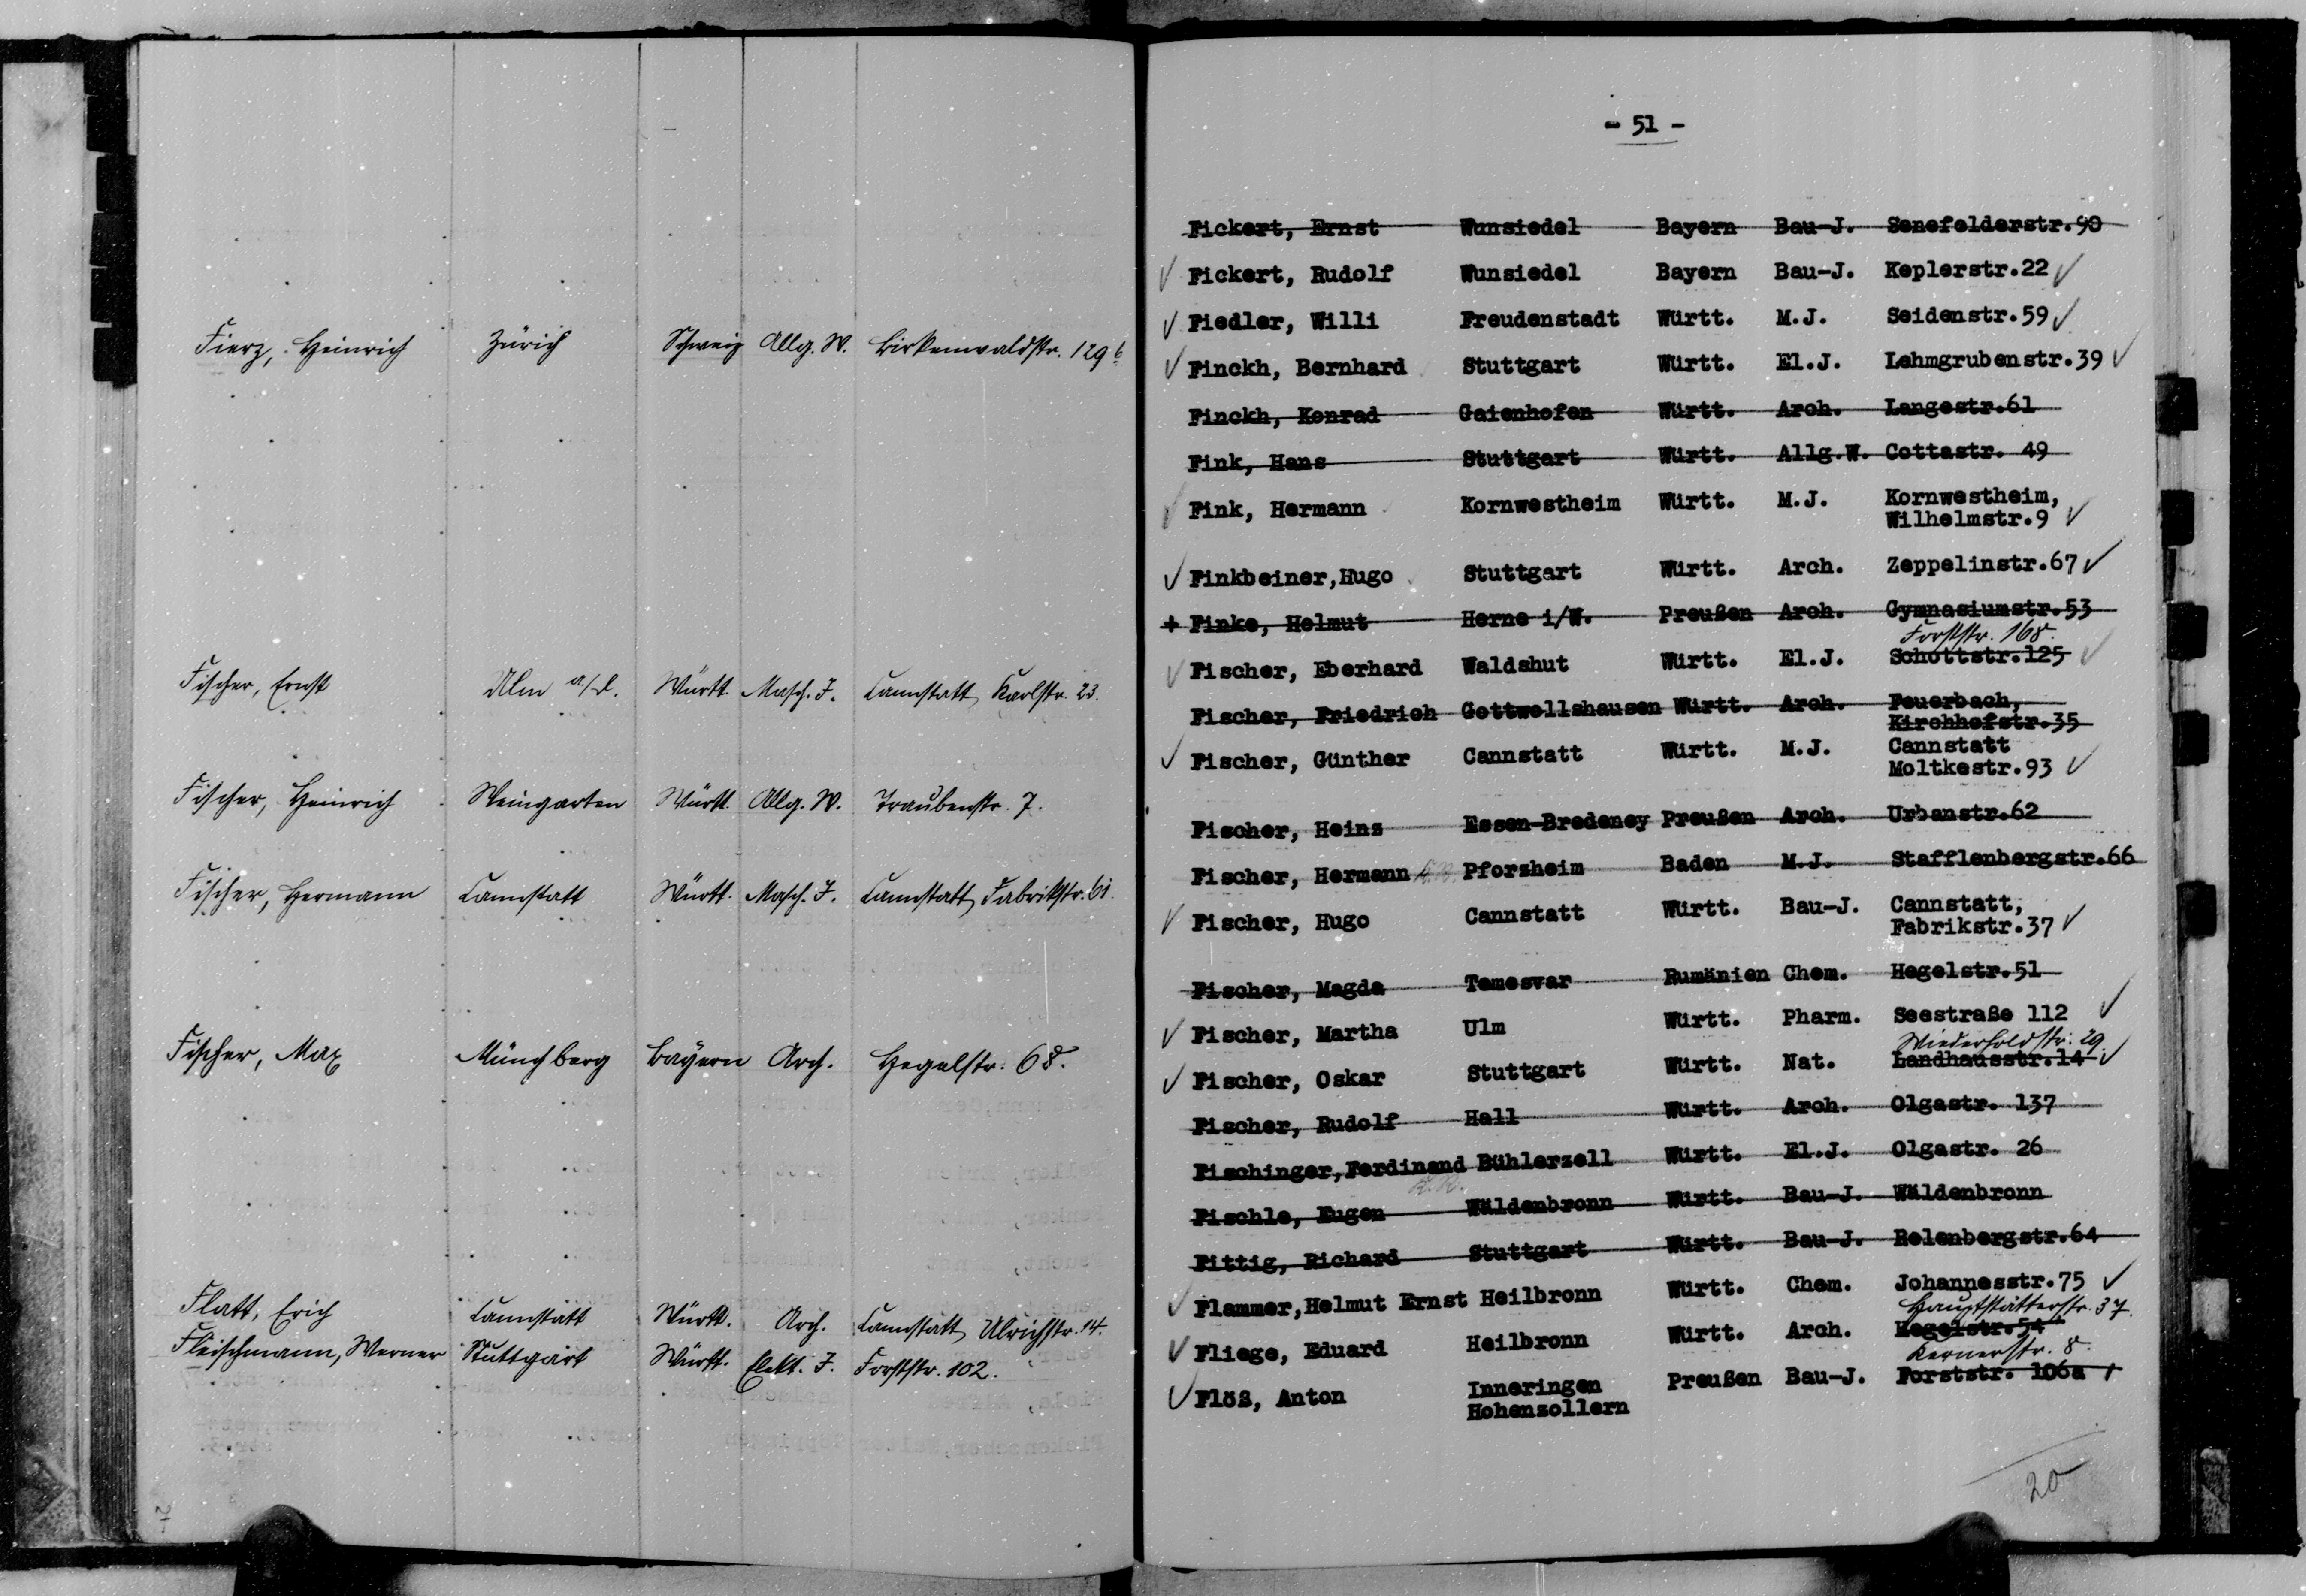 Fierz, Heinrich Zürich Schweiz Allg. W. Birkenwaldstr. 129 b
Fischer, Ernst Ulm a/D. Württ. Masch. I. Cannstatt Karlstr. 23.
Fischer, Heinrich Weingarten Württ. Allg. W. Traubenstr. 7.
Fischer, Hermann Cannstatt Württ. Masch. I. Cannstatt, Fabrikstr. 61.
Fischer, Max Münchberg Bayern Arch. Hegelstr. 68.
Flatt, Erich Cannstatt Württ. Arch. Cannstatt, Ulrichstr. 14.
Fleischmann, Werner Stuttgart Württ. Elekt. I. Forststr. 102.
- 51 -
Fickert, Ernst Wunsiedel Bayern Bau-J. Senefelderstr.90
✓ Fickert, Rudolf Wunsiedel Bayern Bau-J. Keplerstr.22 ✓
✓ Fiedler, Willi Freudenstadt Württ. M.J. Seidenstr.59 ✓
✓ Finckh, Bernhard Stuttgart Württ. El.J. Lehmgrubenstr.39 ✓
Finckh, Konrad Gaienhofen Württ. Arch. Langestr.61
Fink, Hans Stuttgart Württ. Allg.W. Cottastr. 49
✓ Fink, Hermann Kornwestheim Württ. M.J. Kornwestheim,
Wilhelmstr.9 ✓
✓ Finkbeiner,Hugo Stuttgart Württ. Arch. Zeppelinstr.67 ✓
+ Finke, Helmut Herne i/W. Preußen Arch. Gymnasiumstr.53
Forststr. 168.
✓ Fischer, Eberhard Waldshut Württ. El.J. Schottstr.125 ✓
Fischer, Friedrich Gottwollshausen Württ. Arch. Feuerbach,
Kirchhofstr.35
✓ Fischer, Günther Cannstatt Württ. M.J. Cannstatt
Moltkestr.93 ✓
Fischer, Heinz Essen-Bredeney Preußen Arch. Urbanstr.62
Fischer, Hermann Pforzheim Baden M.J. Stafflenbergstr.66
✓ Fischer, Hugo Cannstatt Württ. Bau-J. Cannstatt,
Fabrikstr.37 ✓
Fischer, Magda Temesvar Rumänien Chem. Hegelstr.51
✓ Fischer, Martha Ulm Württ. Pharm. Seestraße 112 ✓
Wiederholdstr. 29.
✓ Fischer, Oskar Stuttgart Württ. Nat. Landhausstr.14 ✓
Fischer, Rudolf Hall Württ. Arch. Olgastr. 137
Fischinger,Ferdinand Bühlerzell Württ. El.J. Olgastr. 26
Fischle, Eugen Wäldenbronn Württ. Bau-J. Wäldenbronn
Fittig, Richard Stuttgart Württ. Bau-J. Relenbergstr.64
✓ Flammer,Helmut Ernst Heilbronn Württ. Chem. Johannesstr.75 ✓
Hauptstätterstr. 37.
✓ Fliege, Eduard Heilbronn Württ. Arch. Hegelstr.54
Kernerstr. 8.
✓ Flöß, Anton Inneringen Preußen Bau-J. Forststr. 106a
Hohenzollern
20